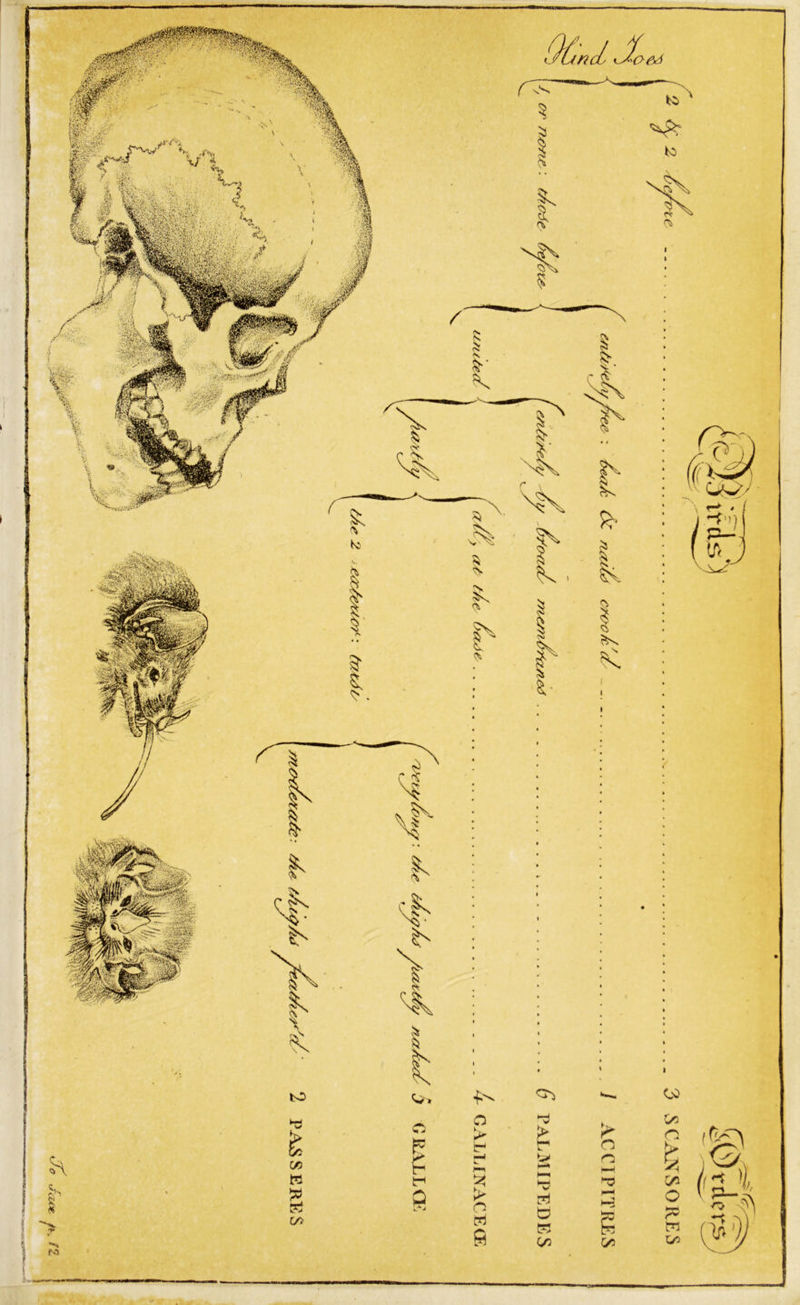 Birds.
Orders
Hind Toes
2 & 2 before ........ 3 SCANSORES
1, or none: those before
entirely free: beak & nails crook'd ........ 1 ACCIPITRES
united
entirely by broad membranes ........ 6 PALMIPEDES
partly
all, at the base ........ 4 GALLINACEŒ
the 2 exterior: tarsi
very long: the thighs partly naked 5 GRALLŒ
moderate: the thighs feather'd 2 PASSERES
To face p. 12